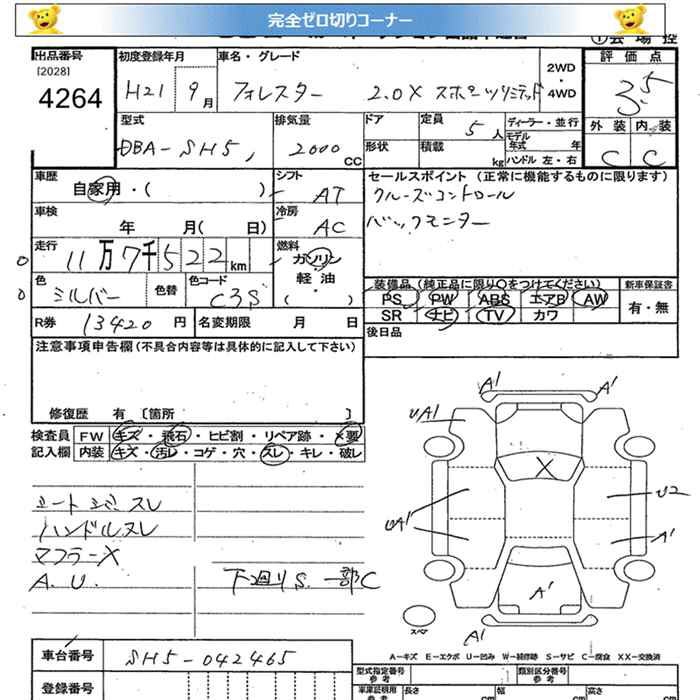 完全ゼロ切りコーナー
①会場控
出品番号 初度登録年月 車名・グレード 2WD・4WD 評価点
[2028]
4264 H21 9月 フォレスター 2.0X スポーツリミテッド 3.5
型式 排気量 ドア 定員 5人 ディーラー・並行 外装 内装
モデル年式 年
DBA-SH5 2000cc 形状 積載 kg ハンドル 左・右 C C
車歴 シフト セールスポイント (正常に機能するものに限ります)
自家用・( ) AT クルーズコントロール
車検 冷房 バックモニター
年 月( 日) AC
走行 燃料
11万7千522km ガソリン・軽油・( )
色 色替 色コード 装備品(純正品に限り○をつけてください) 新車保証書
シルバー C3S PS PW ABS エアB AW 有・無
SR ナビ TV カワ
R券 13420円 名変期限 月 日 後日品
注意事項申告欄(不具合内容等は具体的に記入して下さい)
修復歴 有〔箇所 〕
検査員 FW キズ・飛石・ヒビ割・リペア跡・×要
記入欄 内装 キズ・汚レ・コゲ・穴・スレ・キレ・破レ
A1 A1
UA1
X
UA1 U2
A1
A1
スペア A1
シートシミ スレ
ハンドルスレ
マフラーX
A.U. 下廻りS 一部C
A=キズ E=エクボ U=凹み W=補修跡 S=サビ C=腐食 XX=交換済
車台番号 SH5-042465
型式指定番号 参考 類別区分番号 参考
登録番号 車庫証明用 参考 長さ cm 幅 cm 高さ cm